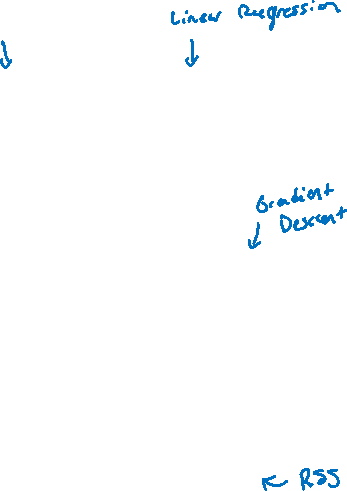 Linear Regression
Gradient
Descent
RSS